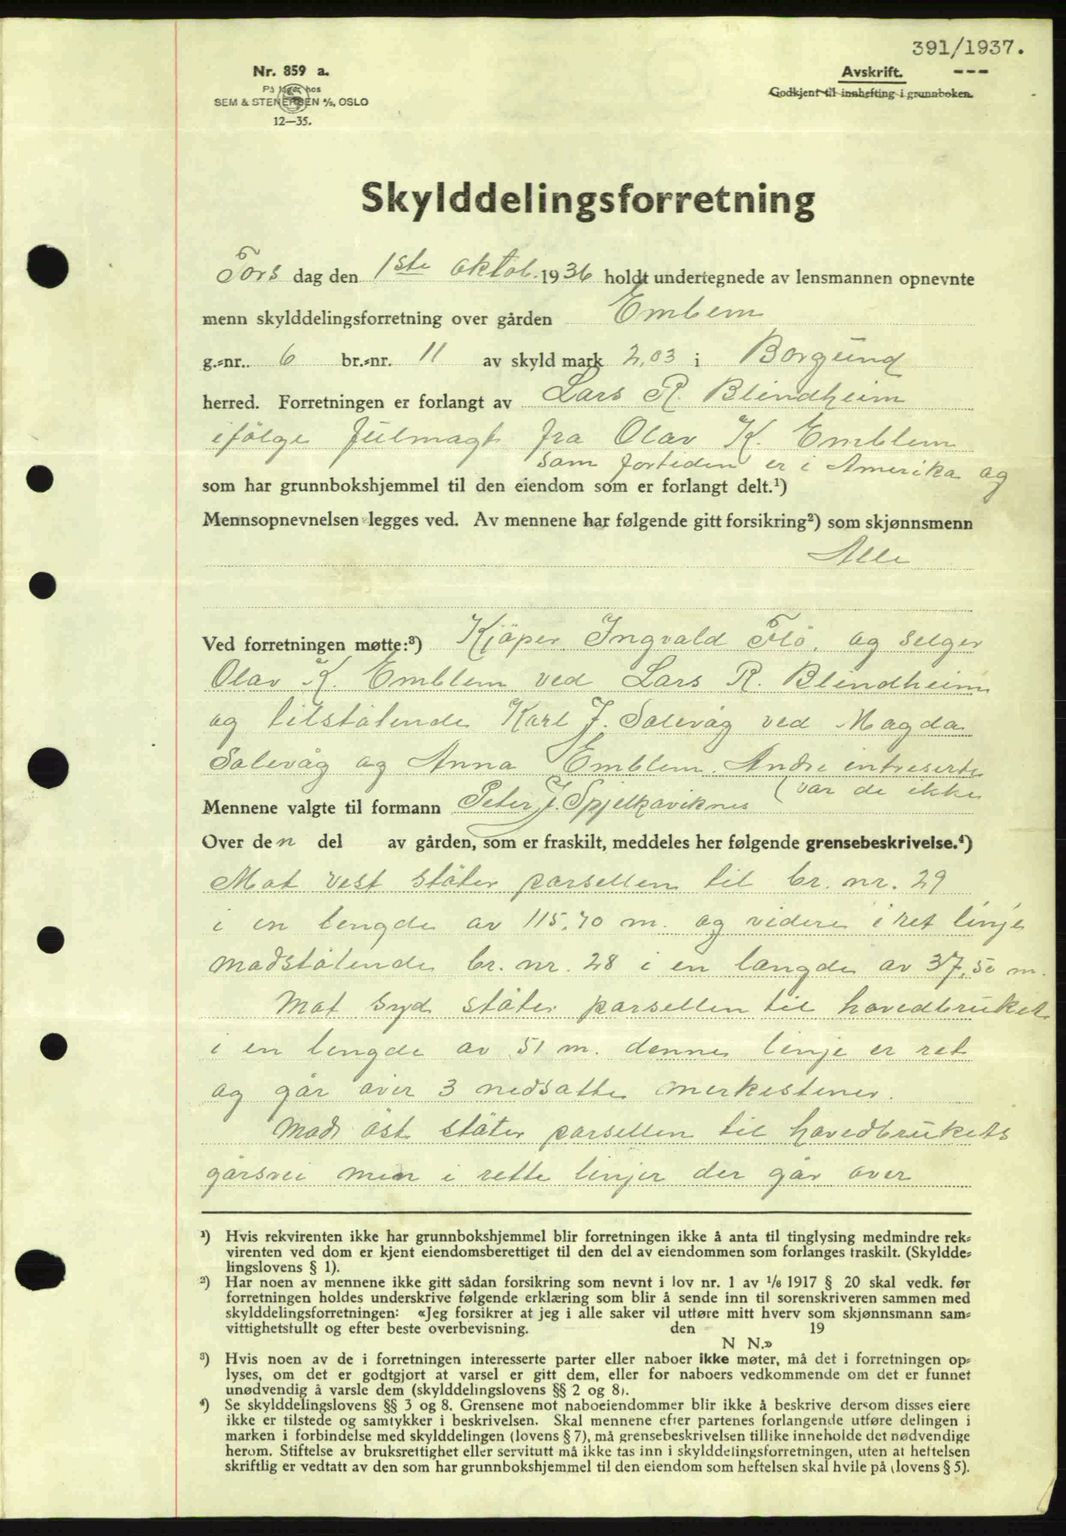 391/1937.
Nr. 859 a.
På lager hos
SEM & STENERSEN A/S, OSLO
12—35.
Avskrift. ---
Godkjent til innhefting i grunnboken.
Skylddelingsforretning
Tors dag den 1ste oktob. 1936 holdt undertegnede av lensmannen opnevnte
menn skylddelingsforretning over gården Emblem
g.=nr. 6 br.=nr. 11 av skyld mark 2,03 i Borgund
herred. Forretningen er forlangt av Lars R. Blindheim
ifölge fulmagt fra Olav K. Emblem
som fortiden er i Amerika og
som har grunnbokshjemmel til den eiendom som er forlangt delt.¹)
Mennsopnevnelsen legges ved. Av mennene har følgende gitt forsikring²) som skjønnsmenn
Alle
Ved forretningen møtte:³) Kjöper Ingvald Flö. og selger
Olav K. Emblem ved Lars R. Blindheim
og tilstötende Karl J. Solevåg ved Magda
Solevåg og Anna Emblem. Andre intreserte
(var de ikke
Mennene valgte til formann Peter J. Spjelkaviknes
Over den del av gården, som er fraskilt, meddeles her følgende grensebeskrivelse.⁴)
Mot vest stöter parsellen til br. nr. 29
i en lengde av 115,70 m. og videre i ret linje
modstötende br. nr. 28 i en længde av 37,50 m.
Mot syd stöter parsellen til hovedbruket
i en lengde av 51 m. denne linje er ret
og går över 3 nedsatte merkestener.
Mod öst stöter parsellen til hovedbrukets
gårsvei men i rette linjer der går over
¹) Hvis rekvirenten ikke har grunnbokshjemmel blir forretningen ikke å anta til tinglysing medmindre rek=
virenten ved dom er kjent eiendomsberettiget til den del av eiendommen som forlanges fraskilt. (Skyldde=
lingslovens § 1).
²) Har noen av mennene ikke gitt sådan forsikring som nevnt i lov nr. 1 av 1/6 1917 § 20 skal vedk. før
forretningen holdes underskrive følgende erklæring som blir å sende inn til sorenskriveren sammen med
skylddelingsforretningen: «Jeg forsikrer at jeg i alle saker vil utføre mitt hverv som skjønnsmann sam=
vittighetsfullt og efter beste overbevisning. den 19
N N.»
³) Hvis noen av de i forretningen interesserte parter eller naboer ikke møter, må det i forretningen op=
lyses, om det er godtgjort at varsel er gitt dem, eller for naboers vedkommende om det er funnet
unødvendig å varsle dem (skylddelingslovens §§ 2 og 8).
⁴) Se skylddelingslovens §§ 3 og 8. Grensene mot naboeiendommer blir ikke å beskrive dersom disses eiere
ikke er tilstede og samtykker i beskrivelsen. Skal mennene efter partenes forlangende utføre delingen i
marken i forbindelse med skylddelingen (lovens § 7), må grensebeskrivelsen tillike inneholde det nødvendige
herom. Stiftelse av bruksrettighet eller servitutt må ikke tas inn i skylddelingsforretningen, uten at heftelsen
skriftlig er vedtatt av den som har grunnbokshjemmel til den eiendom som heftelsen skal hvile på (lovens § 5).